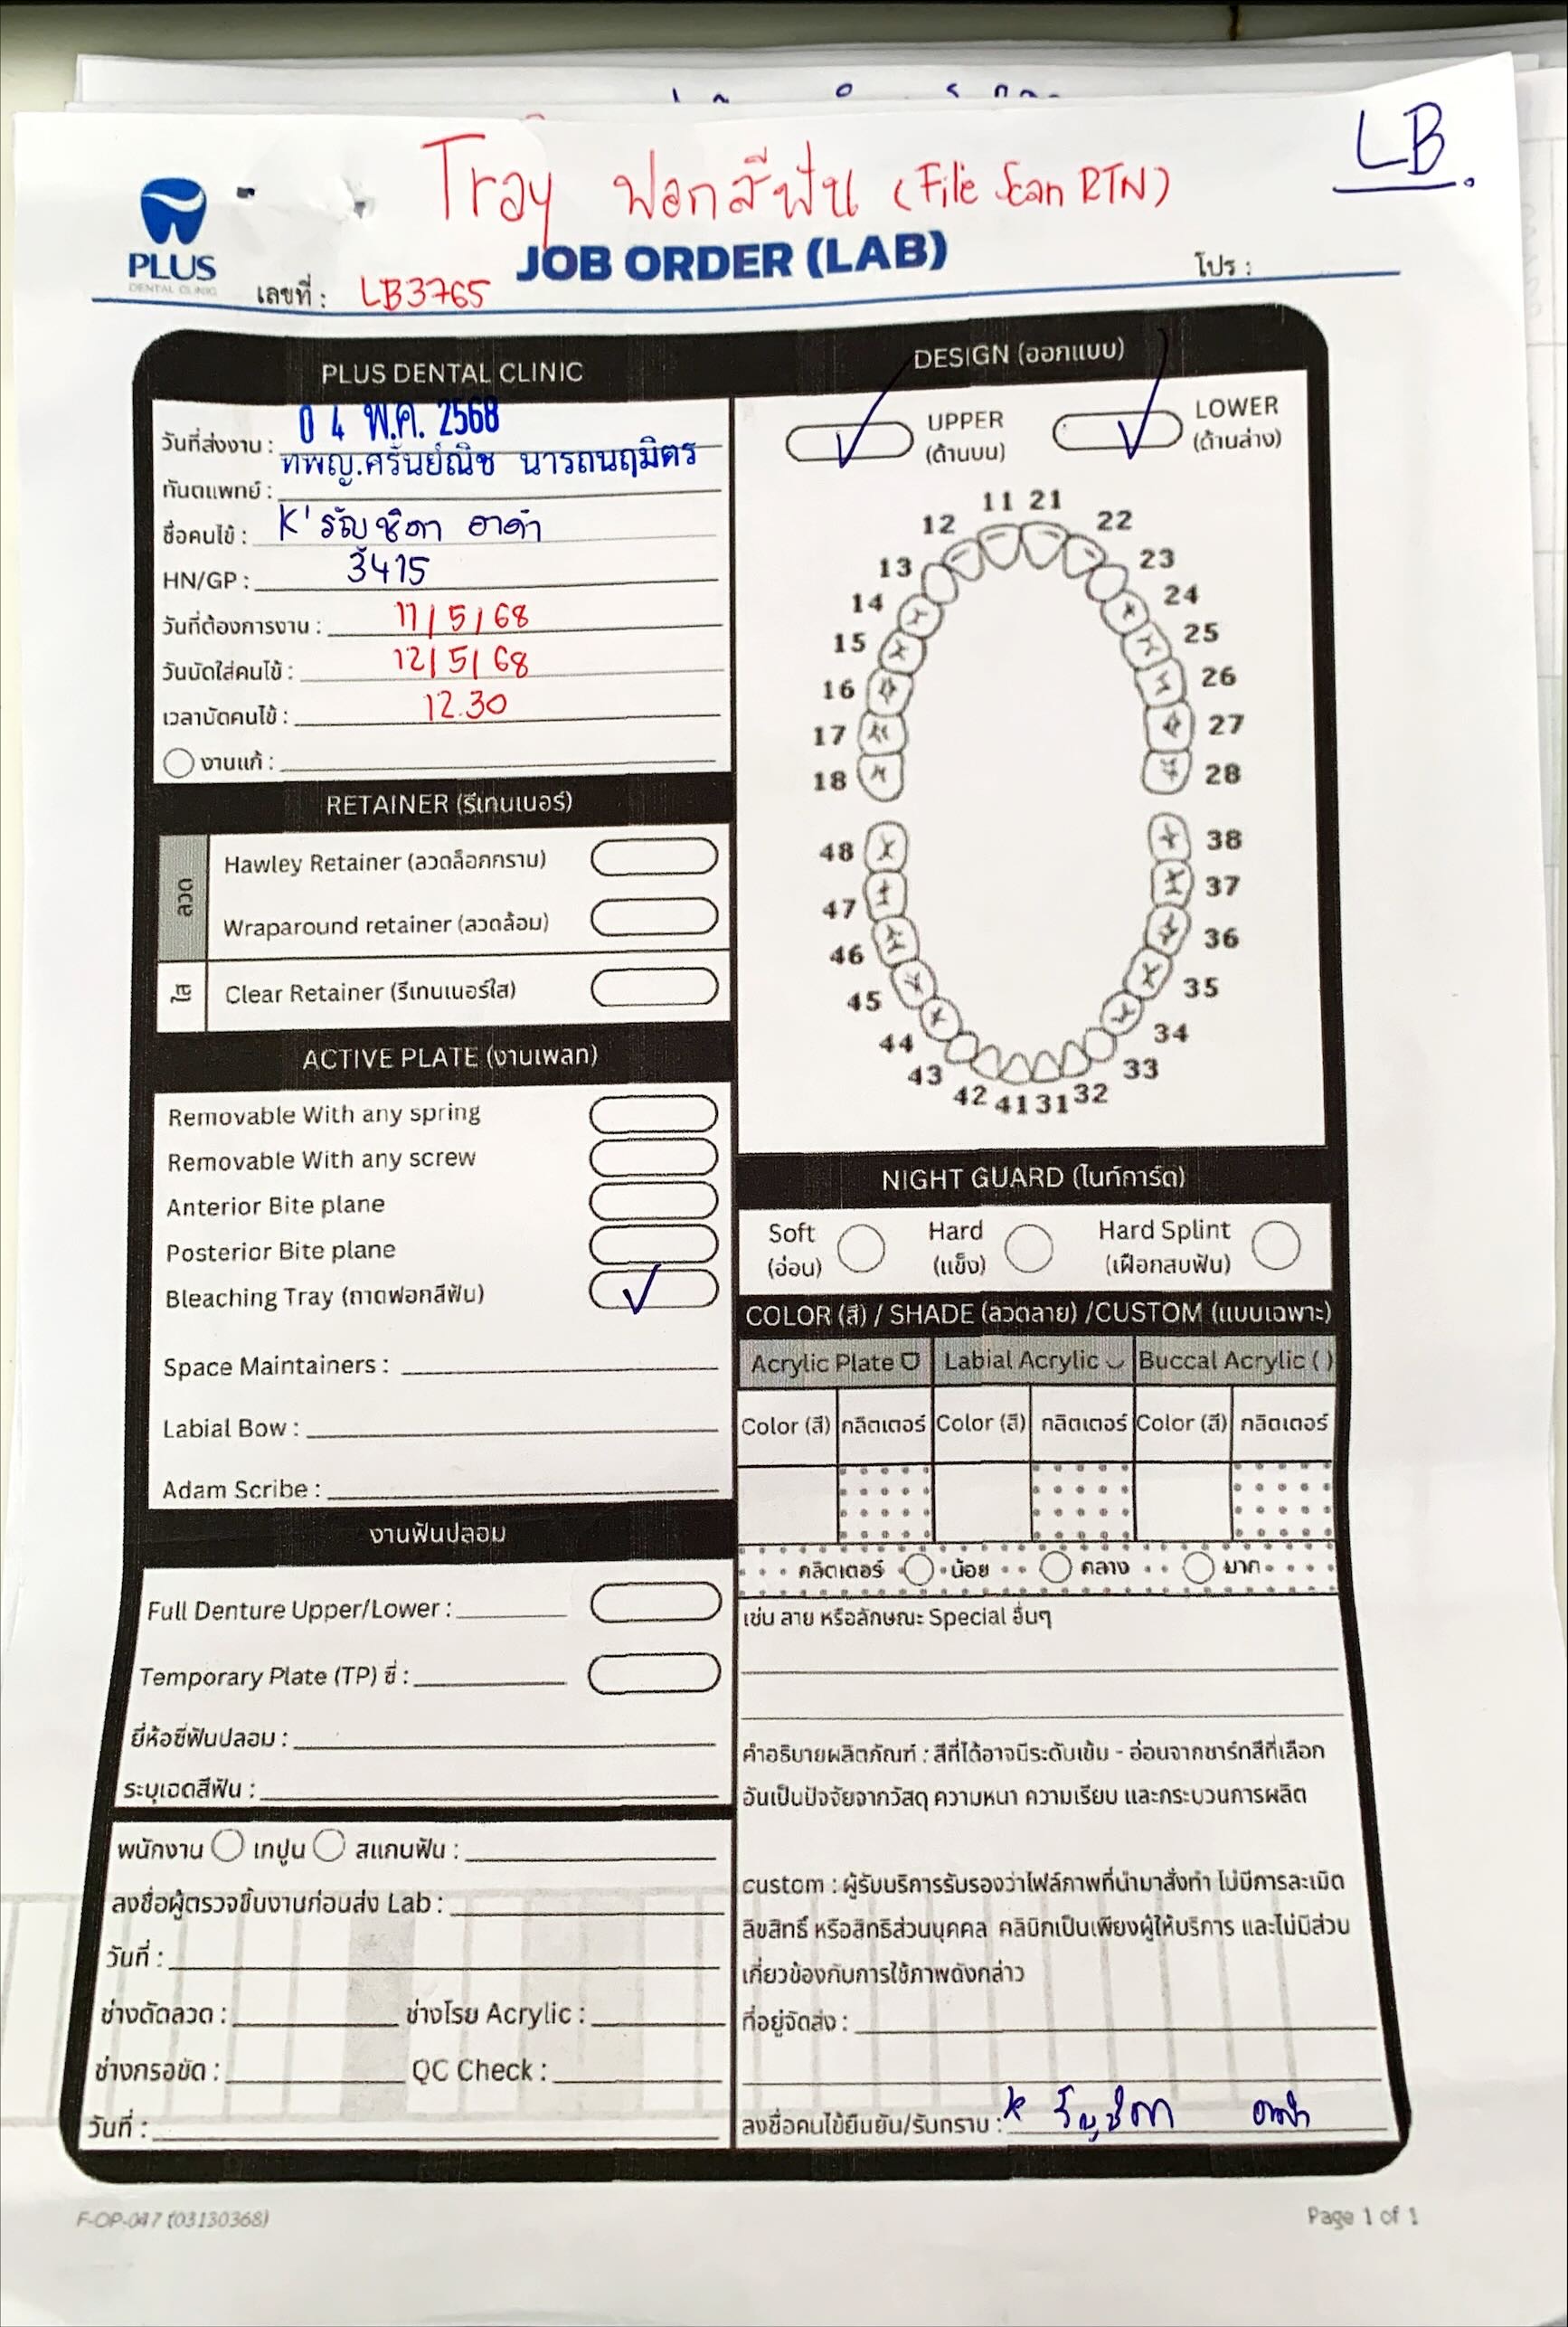 LB.
Tray ฟอกสีฟัน (File Scan RTN)
PLUS
DENTAL CLINIC
JOB ORDER (LAB)
เลขที่ : LB3765
โปร :
PLUS DENTAL CLINIC
วันที่ส่งงาน : 0 4 พ.ค. 2568
ทันตแพทย์ : ทพญ.ศรันย์ณิช นารถนฤมิตร
ชื่อคนไข้ : K' รัญชิดา อาดำ
HN/GP : 3415
วันที่ต้องการงาน : 11/5/68
วันนัดใส่คนไข้ : 12/5/68
เวลานัดคนไข้ : 12.30
งานแก้ :
RETAINER (รีเทนเนอร์)
ลวด
Hawley Retainer (ลวดล็อกกราม)
Wraparound retainer (ลวดล้อม)
ใส
Clear Retainer (รีเทนเนอร์ใส)
ACTIVE PLATE (งานเพลท)
Removable With any spring
Removable With any screw
Anterior Bite plane
Posterior Bite plane
Bleaching Tray (ถาดฟอกสีฟัน) ✓
Space Maintainers :
Labial Bow :
Adam Scribe :
งานฟันปลอม
Full Denture Upper/Lower :
Temporary Plate (TP) ซี่ :
ยี่ห้อซี่ฟันปลอม :
ระบุเฉดสีฟัน :
พนักงาน เทปูน สแกนฟัน :
ลงชื่อผู้ตรวจชิ้นงานก่อนส่ง Lab :
วันที่ :
ช่างดัดลวด : ช่างโรย Acrylic :
ช่างกรอขัด : QC Check :
วันที่ :
DESIGN (ออกแบบ)
✓ UPPER ✓ LOWER
(ด้านบน) (ด้านล่าง)
11 21
12 22
13 23
14 24
15 25
16 26
17 27
18 28
48 38
47 37
46 36
45 35
44 34
43 33
42 41 31 32
NIGHT GUARD (ไนท์การ์ด)
Soft Hard Hard Splint
(อ่อน) (แข็ง) (เฝือกสบฟัน)
COLOR (สี) / SHADE (ลวดลาย) /CUSTOM (แบบเฉพาะ)
Acrylic Plate Labial Acrylic Buccal Acrylic ( )
Color (สี) กลิตเตอร์ Color (สี) กลิตเตอร์ Color (สี) กลิตเตอร์
กลิตเตอร์ น้อย กลาง มาก
เช่น ลาย หรือลักษณะ Special อื่นๆ
คำอธิบายผลิตภัณฑ์ : สีที่ได้อาจมีระดับเข้ม - อ่อนจากชาร์ทสีที่เลือก
อันเป็นปัจจัยจากวัสดุ ความหนา ความเรียบ และกระบวนการผลิต
custom : ผู้รับบริการรับรองว่าไฟล์ภาพที่นำมาสั่งทำ ไม่มีการละเมิด
ลิขสิทธิ์ หรือสิทธิส่วนบุคคล คลินิกเป็นเพียงผู้ให้บริการ และไม่มีส่วน
เกี่ยวข้องกับการใช้ภาพดังกล่าว
ที่อยู่จัดส่ง :
ลงชื่อคนไข้ยืนยัน/รับทราบ : K รัญชิดา อาดำ
F-OP-047 (03130368)
Page 1 of 1